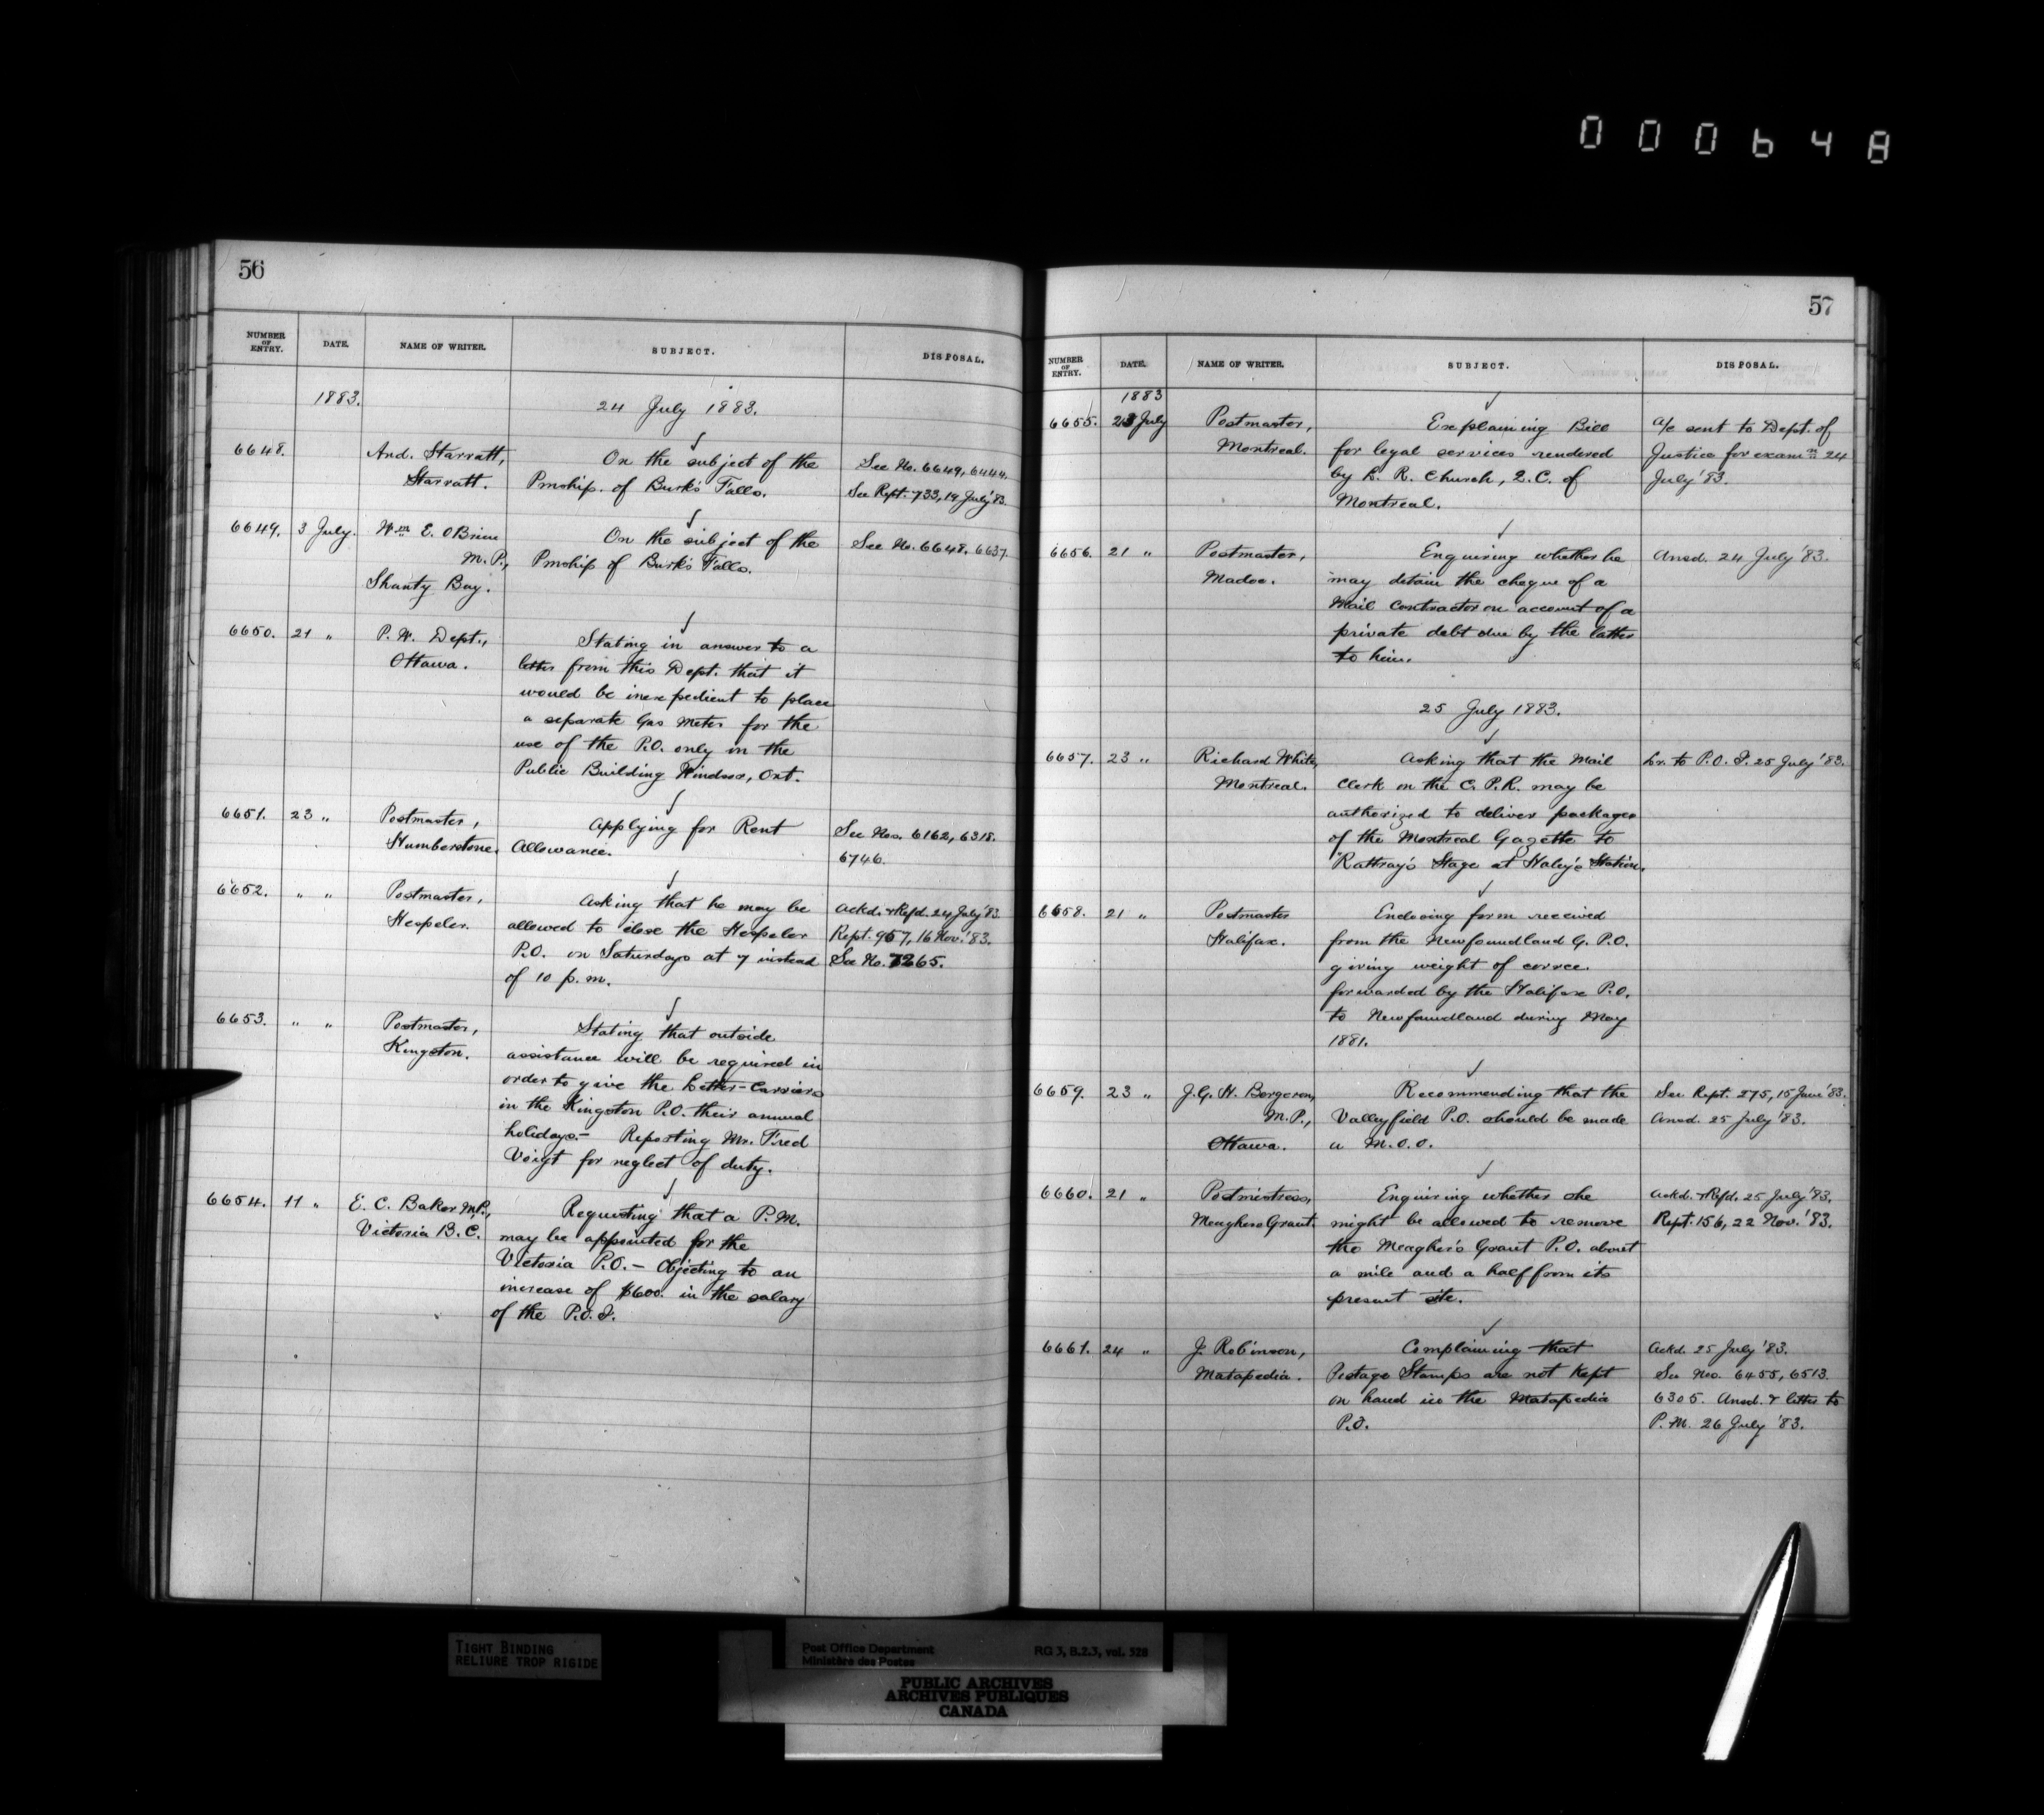 000648
56
NUMBER OF ENTRY. DATE. NAME OF WRITER. SUBJECT. DISPOSAL.
1883. 24 July 1883.
6648. And. Starratt, On the subject of the See No. 6649, 6444.
Starratt. Pmship. of Burk's Falls. See Rept. 733, 19 July '83.
6649. 3 July. Wm. E. O'Brien On the subject of the See No. 6648. 6637.
M.P., Pmship of Burk's Falls.
Shanty Bay.
6650. 21 " P. W. Dept., Stating in answer to a
Ottawa. letter from this Dept. that it
would be inexpedient to place
a separate Gas Meter for the
use of the P.O. only in the
Public Building Windsor, Ont.
6651. 23 " Postmaster, Applying for Rent See Nos. 6162, 6318.
Humberstone. Allowance. 6746.
6652. " " Postmaster, Asking that he may be Ackd. & Refd. 24 July '83.
Hespeler. allowed to close the Hespeler Rept. 957, 16 Nov. '83.
P.O. on Saturdays at 7 instead See No. 7265.
of 10 p.m.
6653. " " Postmaster, Stating that outside
Kingston. assistance will be required in
order to give the Letter-Carriers
in the Kingston P.O. their annual
holidays.- Reporting Mr. Fred
Voigt for neglect of duty.
6654. 11 " E. C. Baker M.P., Requesting that a P.M.
Victoria B.C. may be appointed for the
Victoria P.O. - Objecting to an
increase of $600. in the salary
of the P.O.I.
57
NUMBER OF ENTRY. DATE. NAME OF WRITER. SUBJECT. DISPOSAL.
1883
6655. 23 July Postmaster, Explaining Bill A/c sent to Dept. of
Montreal. for legal services rendered Justice for examn. 24
by L. R. Church, Q.C. of July '83.
Montreal.
6656. 21 " Postmaster, Enquiring whether he Ansd. 24 July '83.
Madoc. may detain the cheque of a
Mail Contractor on account of a
private debt due by the latter
to him.
25 July 1883.
6657. 23 " Richard White, Asking that the Mail Lr. to P.O.I. 25 July '83.
Montreal. Clerk on the C.P.R. may be
authorized to deliver packages
of the Montreal Gazette to
Rattray's Stage at Haley's Station.
6658. 21 " Postmaster Enclosing form received
Halifax. from the Newfoundland G.P.O.
giving weight of corrce.
forwarded by the Halifax P.O.
to Newfoundland during May
1881.
6659. 23 " J.G.H. Bergeron, Recommending that the See Rept. 275, 15 June '83.
M.P., Valleyfield P.O. should be made Ansd. 25 July '83.
Ottawa. a M.O.O.
6660. 21 " Postmistress, Enquiring whether she Ackd. & Refd. 25 July '83.
Meaghers Grant. might be allowed to remove Rept. 156, 22 Nov. '83.
the Meagher's Grant P.O. about
a mile and a half from its
present site.
6661. 24 " J. Robinson, Complaining that Ackd. 25 July '83.
Matapedia. Postage Stamps are not kept See Nos. 6455, 6513.
on hand in the Matapedia 6305. Ansd. & letter to
P.O. P.M. 26 July '83.
TIGHT BINDING
RELIURE TROP RIGIDE
Post Office Department RG 3, B.2.3, vol. 528
Ministère des Postes
PUBLIC ARCHIVES
ARCHIVES PUBLIQUES
CANADA